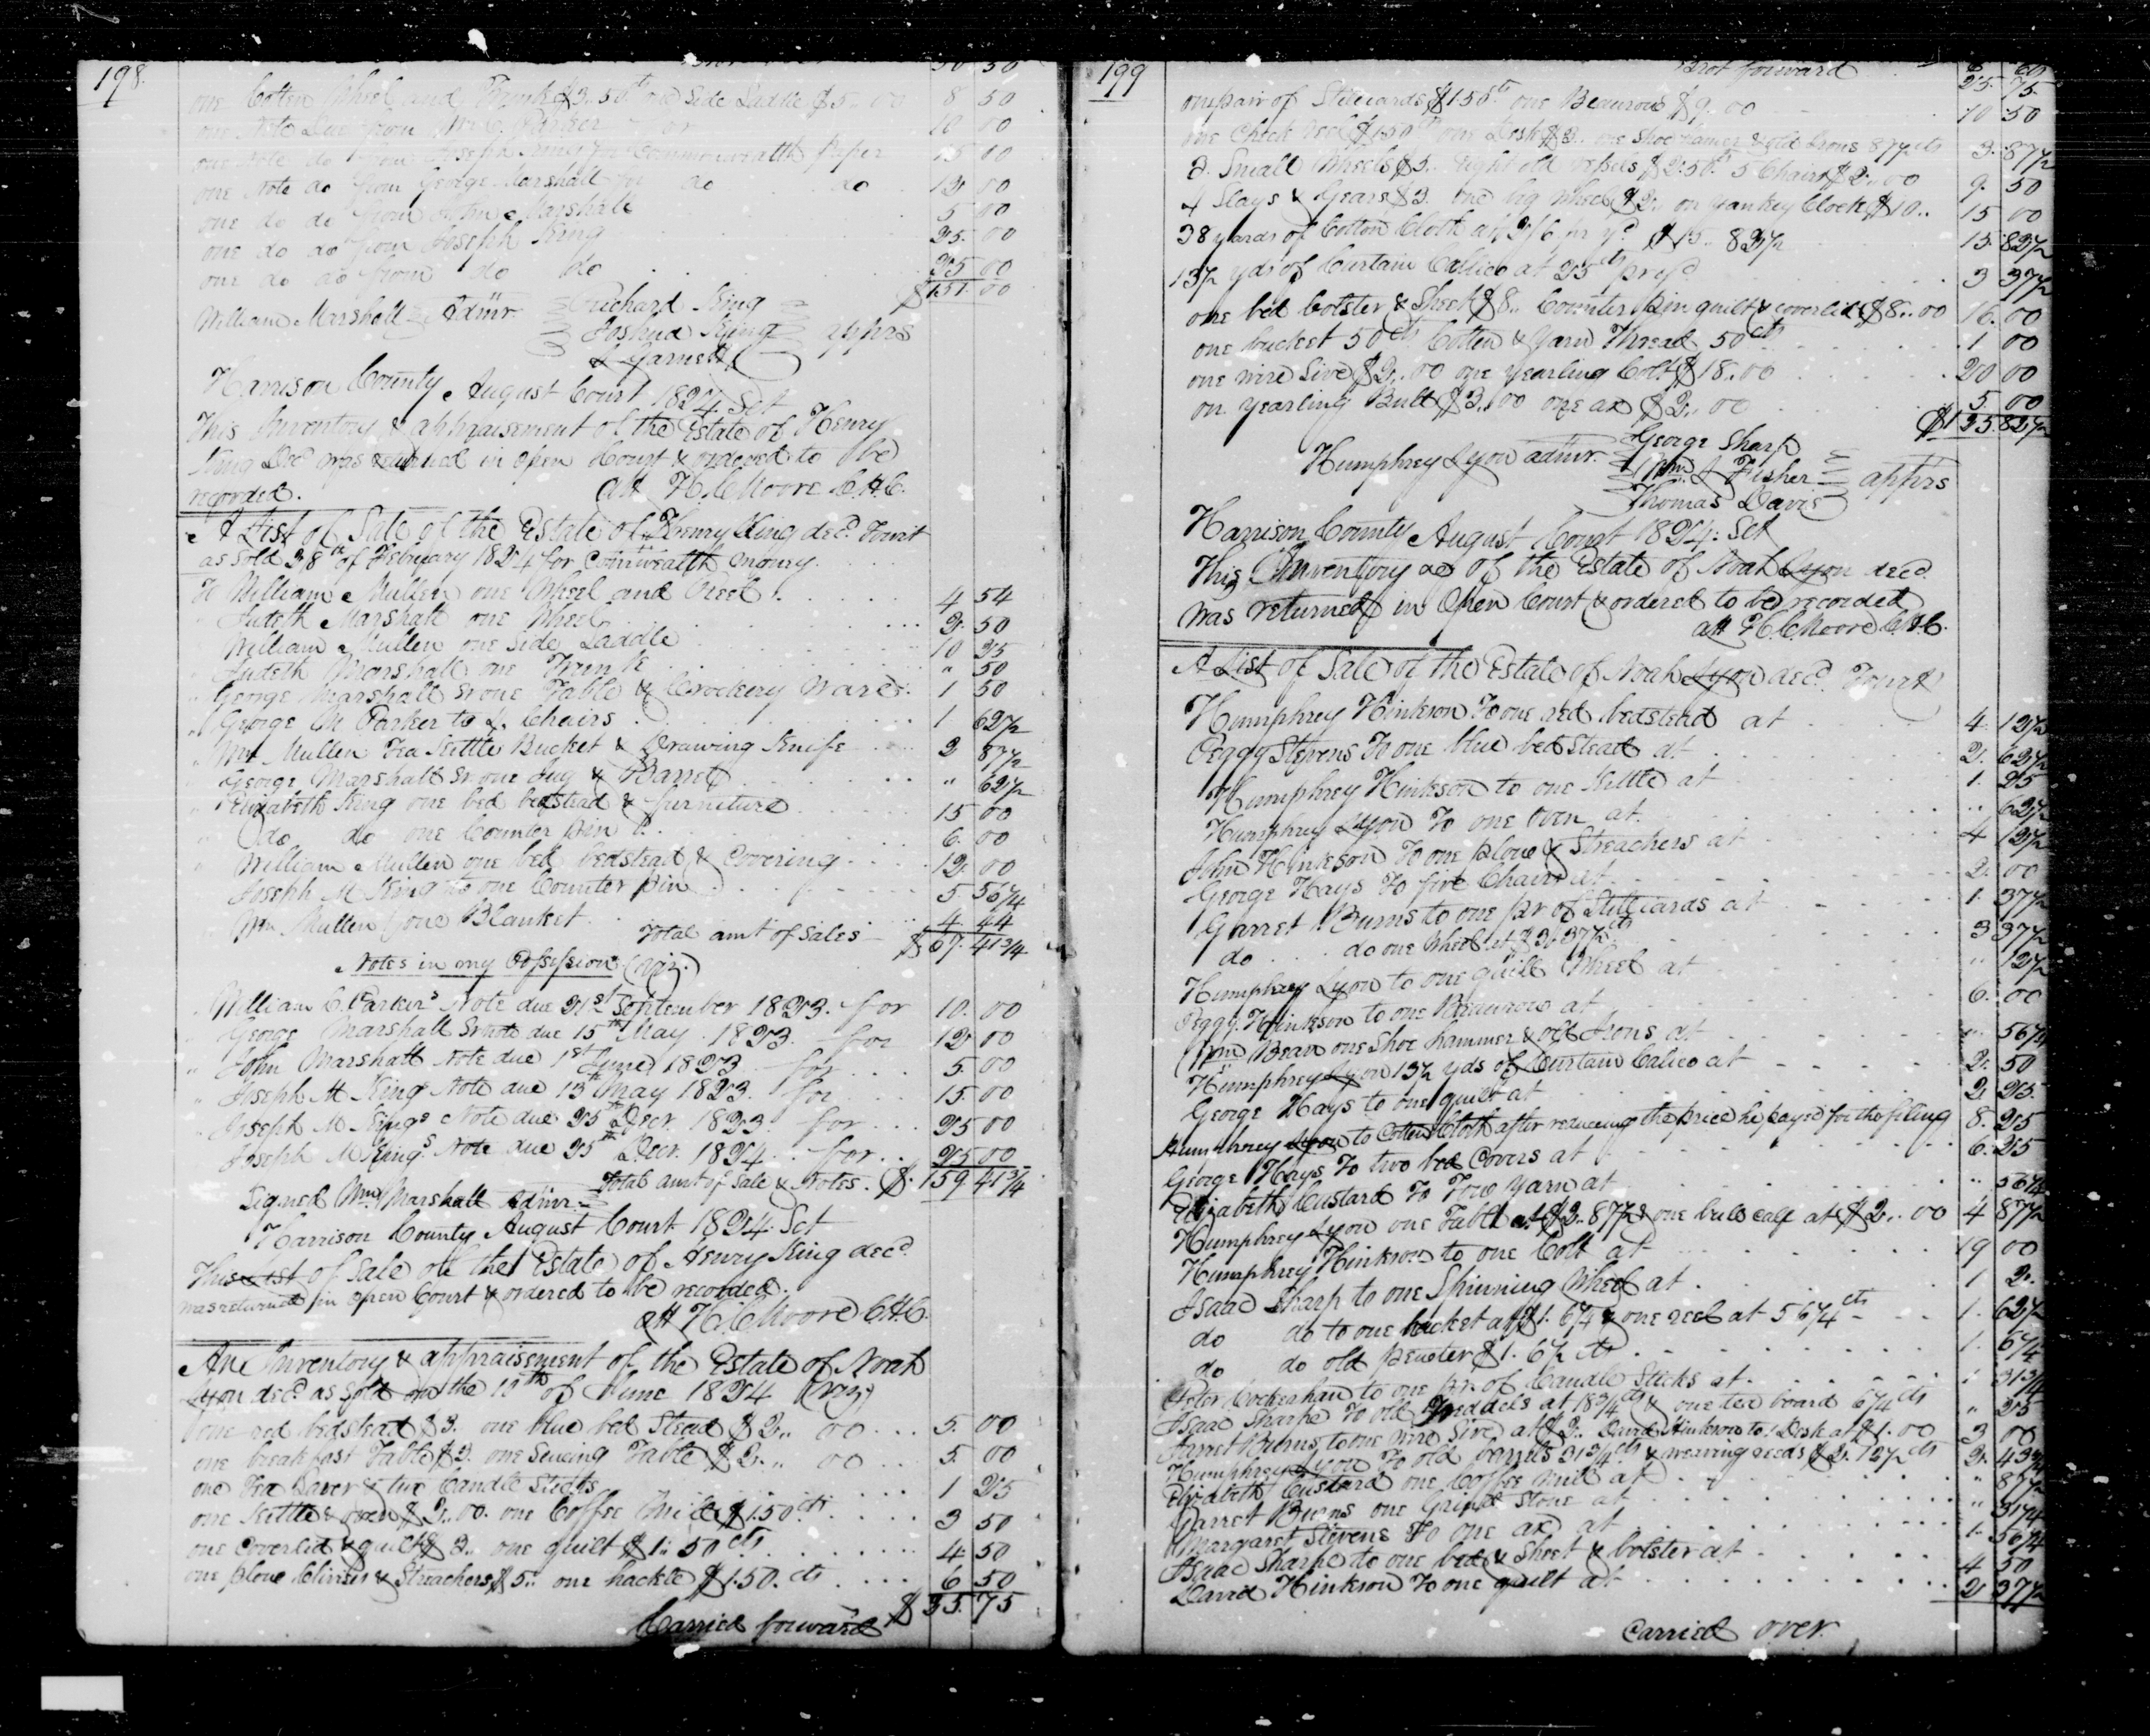 198.
50 50
one Cotten Wheel and Trunk $3..50cts one Side Saddle $5..00 8 50
one Note Due from Wm C. Parker for 10 00
one Note do from Joseph King for Commonwealth paper 15 00
one Note do from George Marshall for do do 12 00
one do do from John Marshall 5 00
one do do from Joseph King 25 00
one do do from do do 25 00
$151. 00
William Marshall Admr. Richard King
Joshua King apprs
L Garnett
Harrison County August Court 1824. Sct
This Inventory & appraisement of the Estate of Henry
King Decd was returned in open Court & ordered to be
recorded. att H. C. Moore C.H.C.
A List of Sale of the Estate of Henry King decd. Towit
as Sold 28th of February 1824 for Comwealth money.
To William Mullen one Wheel and Reel 4 54
" Judeth Marshall one Wheel 2. 50
William Mullen one Side Saddle 10 25
" Judeth Marshall one Trunk " 50
" George Marshall Sr one Table & Crockery Ware 1 50
" George M Parker to 2. Chairs 1 62½
" Wm Mullen Tea Kettle Bucket & Drawing Knife 2 87½
George Marshall Sr. one Jug & Barrel " 62½
" Elizabeth King one bed bedstead & furniture 15 00
" do do one Counter pin &. 6. 00
" William Mullen one bed bedstead & Covering 12. 00
Joseph M King to one Counter pin 5. 56¼
" Wm Mullen one Blanket 4 44
Total amt of Sales $67. 41¾
Notes in my Possession (Viz.)
" William C. Parkers Note due 21st September 1823. for 10. 00
" George Marshall Sr note due 15th May 1823. for 12. 00
" John Marshall Note due 1st June 1823 for 5. 00
" Joseph M Kings Note due 13th May 1823. for 15. 00
" Joseph M Kings Note due 25th Decr. 1823 for 25 00
" Joseph M Kings Note due 25th Decr. 1824 for 25 00
Total amt of Sale & Notes. $.159 41¾
Signed Wm. Marshall Admr.
Harrison County August Court 1824. Sct
This List of Sale of the Estate of Henry King decd.
was returned in open Court & ordered to be recorded.
att H. C. Moore C.H.C.
An Inventory & appraisement of the Estate of Noah
Lyon decd. as Sold on the 10th of June 1824 (viz)
one red bedstead $3. one blue bed Stead $2.. 00 5. 00
one breakfast Table $3. one Sewing Table $2.. 00 5. 00
one Tea Saver & two Candle Sticks 1 25
one Kettle & oven $2..00. one Coffee Mill $1.50.cts 3 50
one Coverled & quilt $3.. one quilt $1..50cts 4 50
one plow Clivises & Streachers $5.. one hackle $1.50.cts 6 50
Carried forward $25. 75
199
Brot forward $ cts
25. 75.
one pair of Stiliards $1.50cts one Beaurow $9..00 10 50
one Check Reel $1.50 one Desk $2.. one Shoe hamer & old Irons 87½cts 3. 87½
2. Small Wheels $5.. Eight old vessels $2.50. 5 Chairs $2..00 9. 50
4 Slays & Gears $3. one big wheel $2.. on Yankey Clock $10.. 15 00
38 yards of Cotton Cloth at 2/6 pr yd. $15.. 83½ 15. 83½
13½ yds of Curtain Calico at 25cts pr yd 3 37½
one bed bolster & Sheet $8.. Counter pin quilt & coverlid $8..00 16. 00
one bucket 50cts Cotten & Yarn Thread 50cts 1 00
one wire Sive $2..00 one yearling Colt $18..00 20 00
on yearling Bull $3..00 one ax $2..00 5. 00
$125. 83½
George Sharp
Humphrey Lyon admr. Wm. L Fisher apprs
Thomas Davis
Harrison County August Court 1824: Sct
This Inventory &c of the Estate of Noah Lyon decd
was returned in Open Court & ordered to be recorded
att H. C. Moore C.H.C.
A List of Sale of the Estate of Noah Lyon decd. Towit
Humphrey Hinkson To one red bedstead at 4. 12½
Peggy Stevens To one blue bed Stead at 2. 62½
Humphrey Hinkson to one Kittle at 1. 25
Humphrey Lyon To one Oven at. " 62½
John Hinkson To one plow & Streachers at 4 12½
George Hays To five Chairs at 2. 00
Garret Burns to one pr of Stilliards at 1. 37½
do do one Wheel at $3.37½cts 3 37½
Humphrey Lyon to one quill Wheel at " 12½
Peggy. Hinkson to one Beaurow at 6. 00
Wm Bean one Shoe hammer & old Irons at " 56¼
Humphrey Lyon 13½ yds of Curtain Calico at 2. 50
George Hays to one quilt at 2 25.
Humphrey Lyon to Cotten Cloth after reduceing the price he payed for the filling 8. 25
George Hays To two bed Covers at 6. 25
Elizabeth Custard To Tow yarn at " 56¼
Humphrey Lyon one Table at $2..87½ & one bull calf at $2..00 4 87½
Humphrey Hinkson to one Colt at 19 00
Isaac Sharp to one Spinning Wheel at 1 2.
do do to one hacket at $1. 6¼ & one reel at 56¼cts 1. 62½
do do old pewter $1. 6¼ cts 1. 6¼
Peter Cockerham to one pr. of Candle Sticks at " 31¼
Isaac Sharpe To old Treddels at 18¾cts & one tea board 6¼cts " 25
Garret Burns to one wire Sive at $2.. David Hinkson to 1 Desk at $1.00 3 00
Humphrey Lyon To old barrels 31¼cts & weaving reeds $2. 12½cts 2. 43¾
Elizabeth Custard one Coffee Mill at " 87½
Garret Burns one Grind Stone at " 31¼
Margaret Stevens To one ax at 1. 56¼
Isaac Sharpe to one bed & Sheet & bolster at 4 50
David Hinkson To one quilt at 2 37½
Carried over.